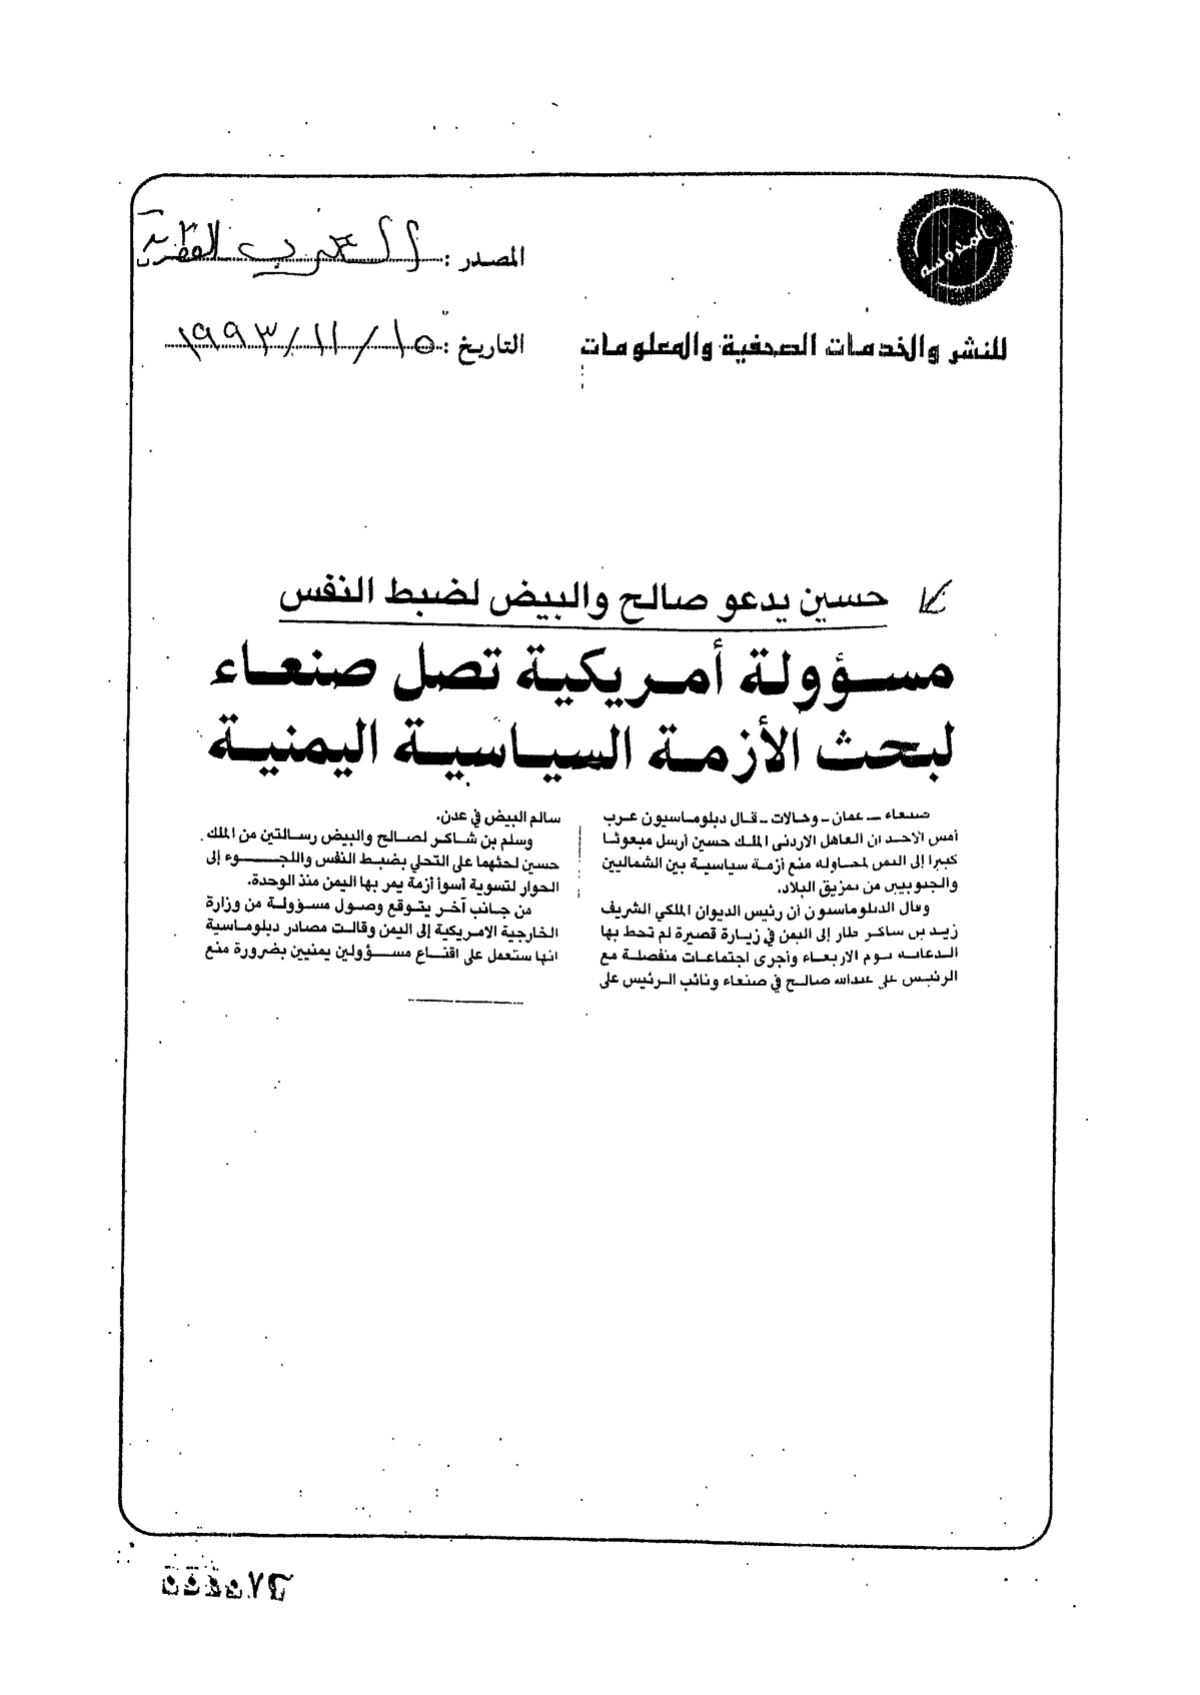 المحروسة
المصدر : العرب القطرية
للنشر والخدمات الصحفية والمعلومات
التاريخ : ١٥ / ١١ / ١٩٩٣
حسين يدعو صالح والبيض لضبط النفس
مسؤولة أمريكية تصل صنعاء
لبحث الأزمة السياسية اليمنية
صنعاء - عمان - وكالات - قال دبلوماسيون عرب
أمس الاحد ان العاهل الاردني الملك حسين أرسل مبعوثا
كبيرا إلى اليمن لمحاولة منع أزمة سياسية بين الشماليين
والجنوبيين من تمزيق البلاد.
وقال الدبلوماسيون أن رئيس الديوان الملكي الشريف
زيد بن شاكر طار إلى اليمن في زيارة قصيرة لم تحط بها
الدعاية يوم الاربعاء وأجرى اجتماعات منفصلة مع
الرئيس علي عبدالله صالح في صنعاء ونائب الرئيس على
سالم البيض في عدن.
وسلم بن شاكر لصالح والبيض رسالتين من الملك
حسين لحثهما على التحلي بضبط النفس واللجوء إلى
الحوار لتسوية أسوأ أزمة يمر بها اليمن منذ الوحدة.
من جانب آخر يتوقع وصول مسؤولة من وزارة
الخارجية الامريكية إلى اليمن وقالت مصادر دبلوماسية
انها ستعمل على اقناع مسؤولين يمنيين بضرورة منع